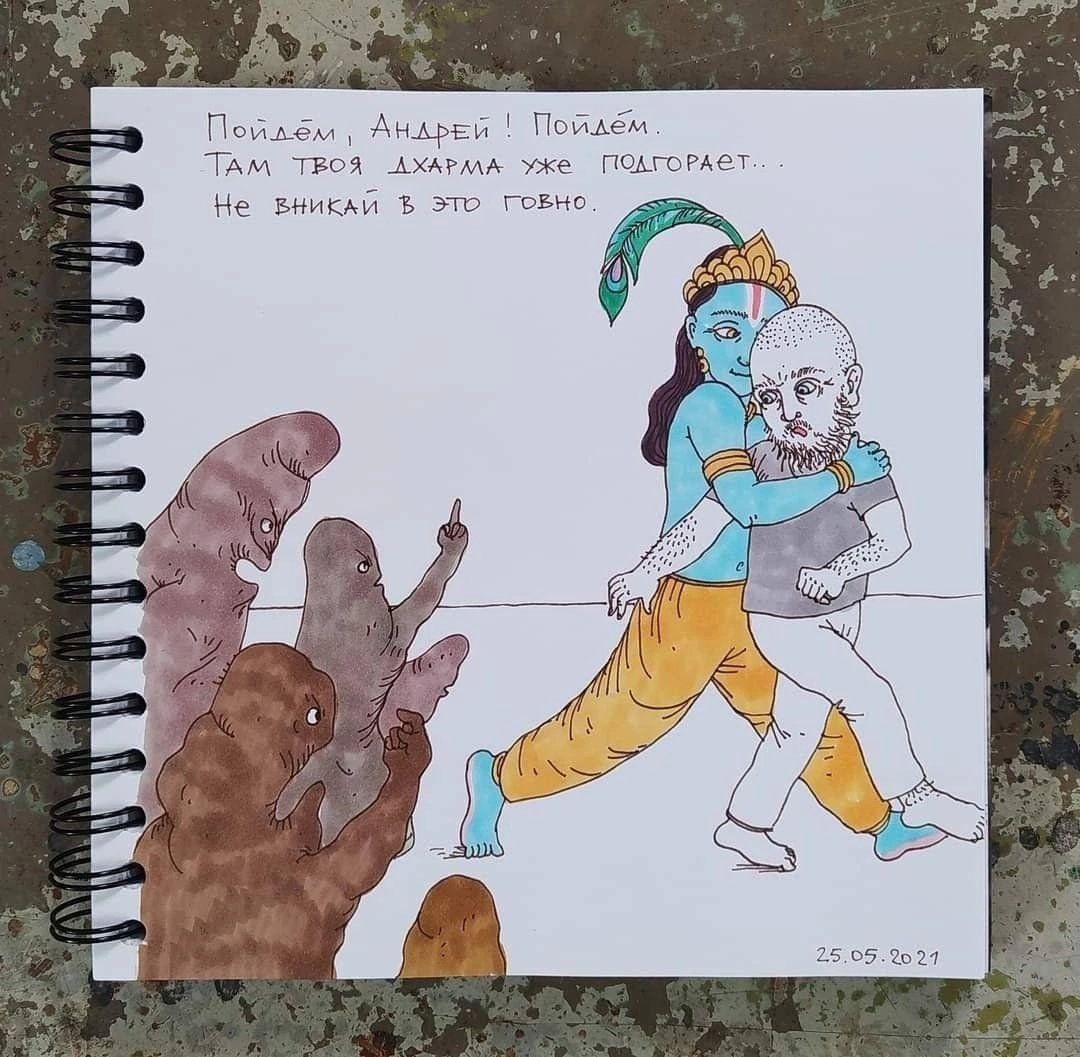 Пойдём, Андрей! Пойдём.
Там твоя дхарма уже подгорает...
Не вникай в это говно.
25.05.2021